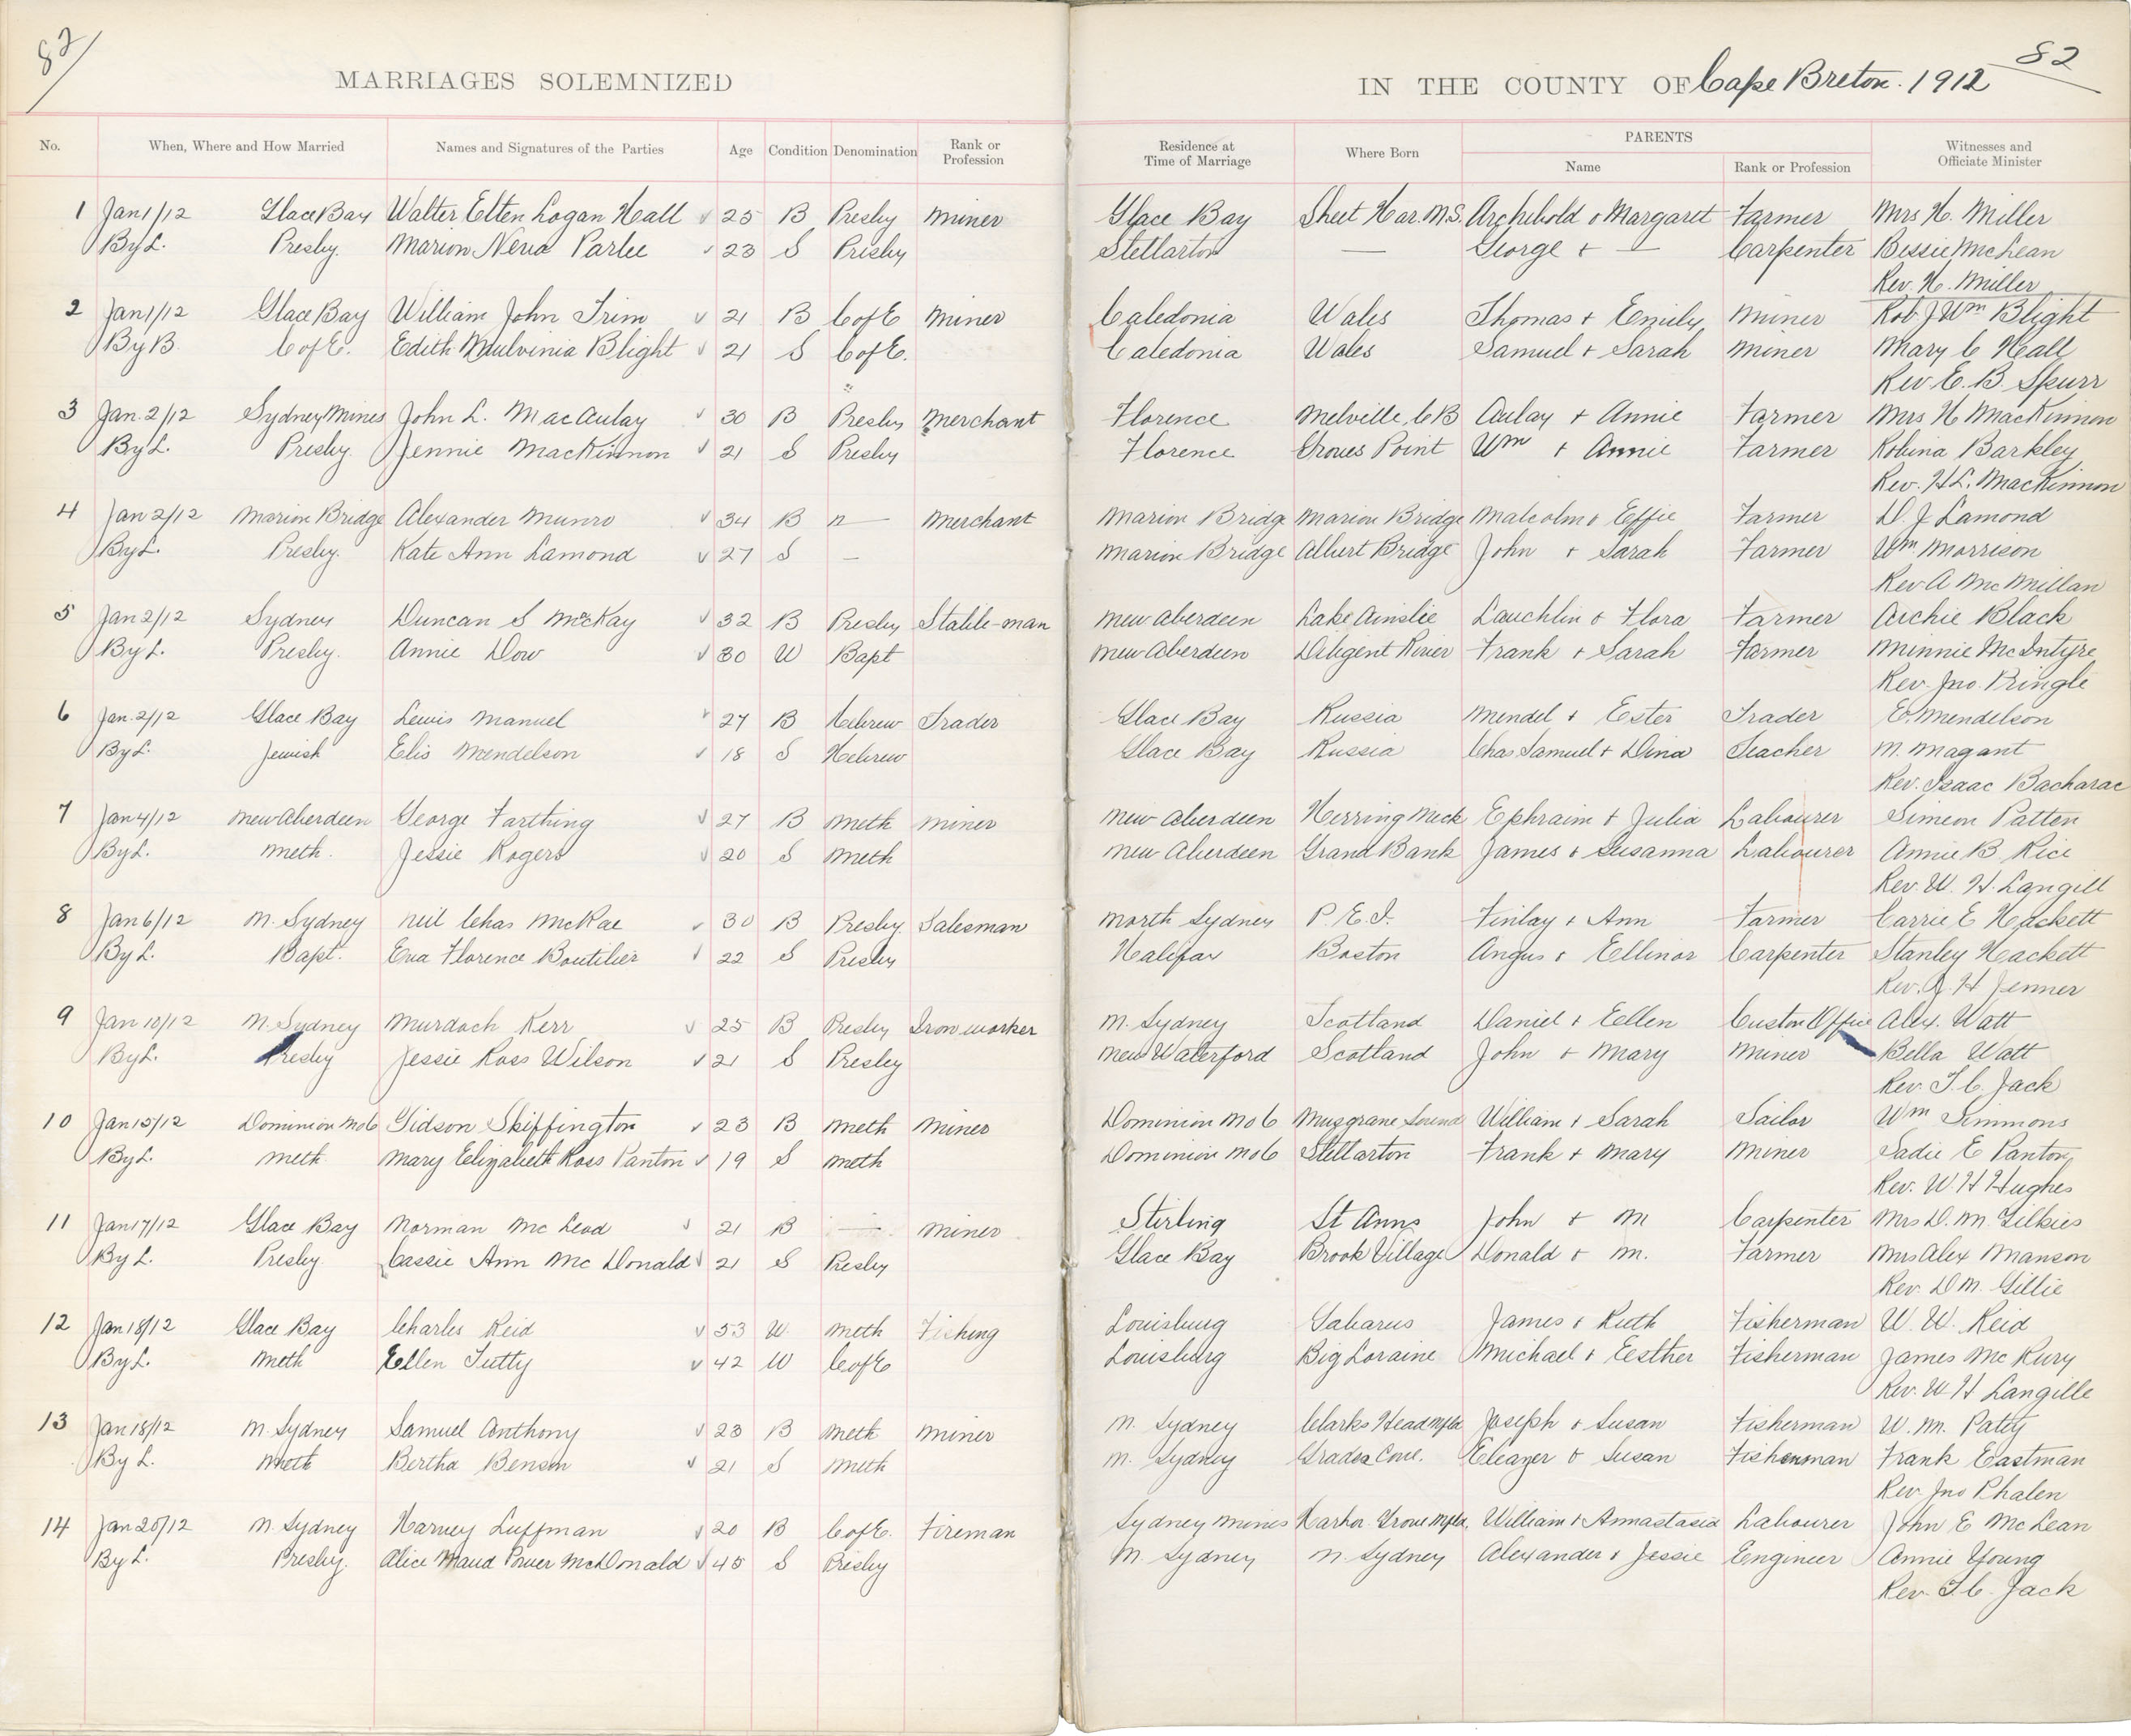 82
82
MARRIAGES SOLEMNIZED IN THE COUNTY OF Cape Breton. 1912
No. When, Where and How Married Names and Signatures of the Parties Age Condition Denomination Rank or Profession Residence at Time of Marriage Where Born PARENTS Name Rank or Profession Witnesses and Officiate Minister
1 Jan 1/12 Glace Bay Walter Elten Logan Hall 25 B Presby Miner Glace Bay Sheet Har. N.S. Archibold & Margaret Farmer Mrs H. Miller
By L. Presby. Marion Neria Parlee 23 S Presby Stellarton — George & — Carpenter Bessie McLean
Rev. H. Miller
2 Jan 1/12 Glace Bay William John Trim 21 B C of E Miner Caledonia Wales Thomas & Emily Miner Rob J Wm Blight
By B. C of E. Edith Maulvinia Blight 21 S C of E. Caledonia Wales Samuel & Sarah Miner Mary C Hall
Rev E. B. Spurr
3 Jan. 2/12 Sydney Mines John L. MacAulay 30 B Presby Merchant Florence Melville, C B Aulay & Annie Farmer Mrs H MacKinnon
By L. Presby. Jennie MacKinnon 21 S Presby Florence Groves Point Wm & Annie Farmer Robina Barkley
Rev. H L. MacKinnon
4 Jan 2/12 Marion Bridge Alexander Munro 34 B n— Merchant Marion Bridge Marion Bridge Malcolm & Effie Farmer D. J Lamond
By L. Presby. Kate Ann Lamond 27 S — Marion Bridge Albert Bridge John & Sarah Farmer Wm Morrison
Rev A McMillan
5 Jan 2/12 Sydney Duncan S McKay 32 B Presby Stable-man New Aberdeen Lake Ainslie Lauchlin & Flora Farmer Archie Black
By L. Presby. Annie Dow 30 W Bapt New Aberdeen Diligent River Frank & Sarah Farmer Minnie McIntyre
Rev. Jno. Pringle
6 Jan. 2/12 Glace Bay Lewis Manuel 27 B Hebrew Trader Glace Bay Russia Mendel & Ester Trader E. Mendelson
By L. Jewish Elis Mendelson 18 S Hebrew Glace Bay Russia Chas Samuel & Dina Teacher M. Magant
Rev. Isaac Bacharac
7 Jan 4/12 New Aberdeen George Farthing 27 B Meth Miner New Aberdeen Herring Neck Ephraim & Julia Labourer Simeon Patten
By L. Meth. Jessie Rogers 20 S Meth New Aberdeen Grand Bank James & Susanna Labourer Annie B. Rice
Rev. W. H. Langill
8 Jan 6/12 N. Sydney Neil Chas McRae 30 B Presby. Salesman North Sydney P. E. I. Finlay & Ann Farmer Carrie E Hackett
By L. Bapt. Eva Florence Boutilier 22 S Presby Halifax Boston Angus & Ellinor Carpenter Stanley Hackett
Rev. A. H Jenner
9 Jan 10/12 N. Sydney Murdoch Kerr 25 B Presby Iron worker N. Sydney Scotland Daniel & Ellen Custom Office Alex. Watt
By L. Presby Jessie Ross Wilson 21 S Presby New Waterford Scotland John & Mary Miner Bella Watt
Rev. T. C. Jack
10 Jan 15/12 Dominion No 6 Gidson Skiffington 23 B Meth Miner Dominion No 6 Musgrane Sound William & Sarah Sailor Wm Simmons
By L. Meth Mary Elizabeth Ross Panton 19 S Meth Dominion No 6 Stellarton Frank & Mary Miner Sadie E Panton
Rev. W H Hughes
11 Jan 17/12 Glace Bay Norman McLeod 21 B — Miner Stirling St Anns John & M Carpenter Mrs D. M. Gilkies
By L. Presby. Cassie Ann McDonald 21 S Presby Glace Bay Brook Village Donald & M. Farmer Mrs Alex Manson
Rev. D M. Gillie
12 Jan 18/12 Glace Bay Charles Reid 53 W Meth Fishing Louisburg Gabarus James & Ruth Fisherman W. W. Reid
By L. Meth Ellen Tutty 42 W C of E Louisburg Big Loraine Michael & Eesther Fisherman James McRury
Rev. W H Langille
13 Jan 18/12 N. Sydney Samuel Anthony 23 B Meth Miner N. Sydney Clarks Head Nfld Joseph & Susan Fisherman W. M. Patey
By L. Meth Bertha Benson 21 S Meth N. Sydney Grades Cove. Eleazer & Susan Fisherman Frank Eastman
Rev. Jno Phalen
14 Jan 20/12 N. Sydney Harvey Luffman 20 B C of E. Fireman Sydney Mines Harbor Grove Nfld. William & Annastasia Labourer John E McLean
By L. Presby. Alice Maud Power McDonald 45 S Presby N. Sydney N. Sydney Alexander & Jessie Engineer Annie Young
Rev. T. C. Jack